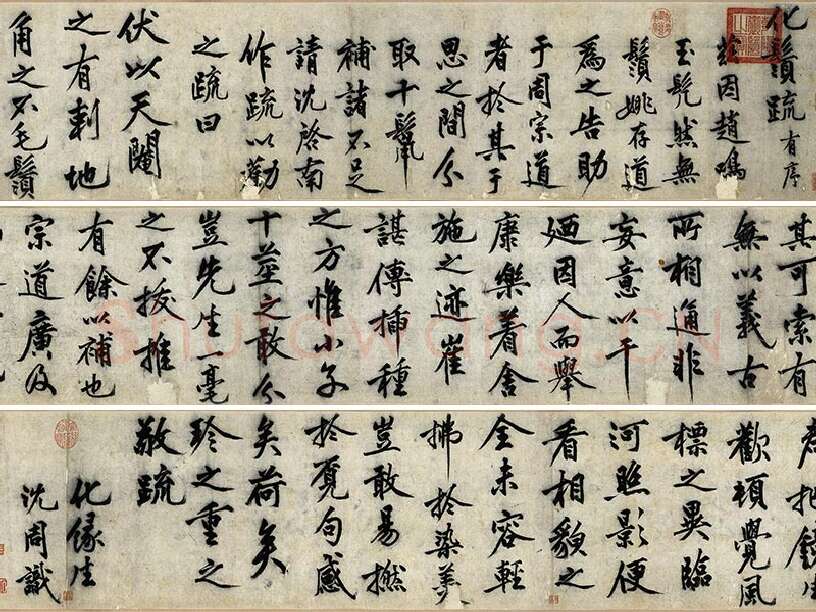 化鬚疏有序
兹因趙鳴
玉髡然無
鬚姚存道
為之告助
于周宗道
者於其于
思之間分
取十鬣
補諸不足
請沈啓南
作疏以勸
之疏曰
伏以天閹
之有刺地
角之不毛鬚
其可索有
無以義古
所相通非
妄意以干
廼因人而舉
康樂着舍
施之迹崔
諶傳插種
之方惟小子
十莖之敢分
豈先生一毫
之不拔推
有餘以補也
宗道廣及
把鏡生
歡頓覺風
標之異臨
河照影便
看相貌之
全未容輕
拂於染羹
豈敢易撚
於覓句感
矣荷矣
珍之重之
敬疏
化緣生
沈周識
Shufawang.CN